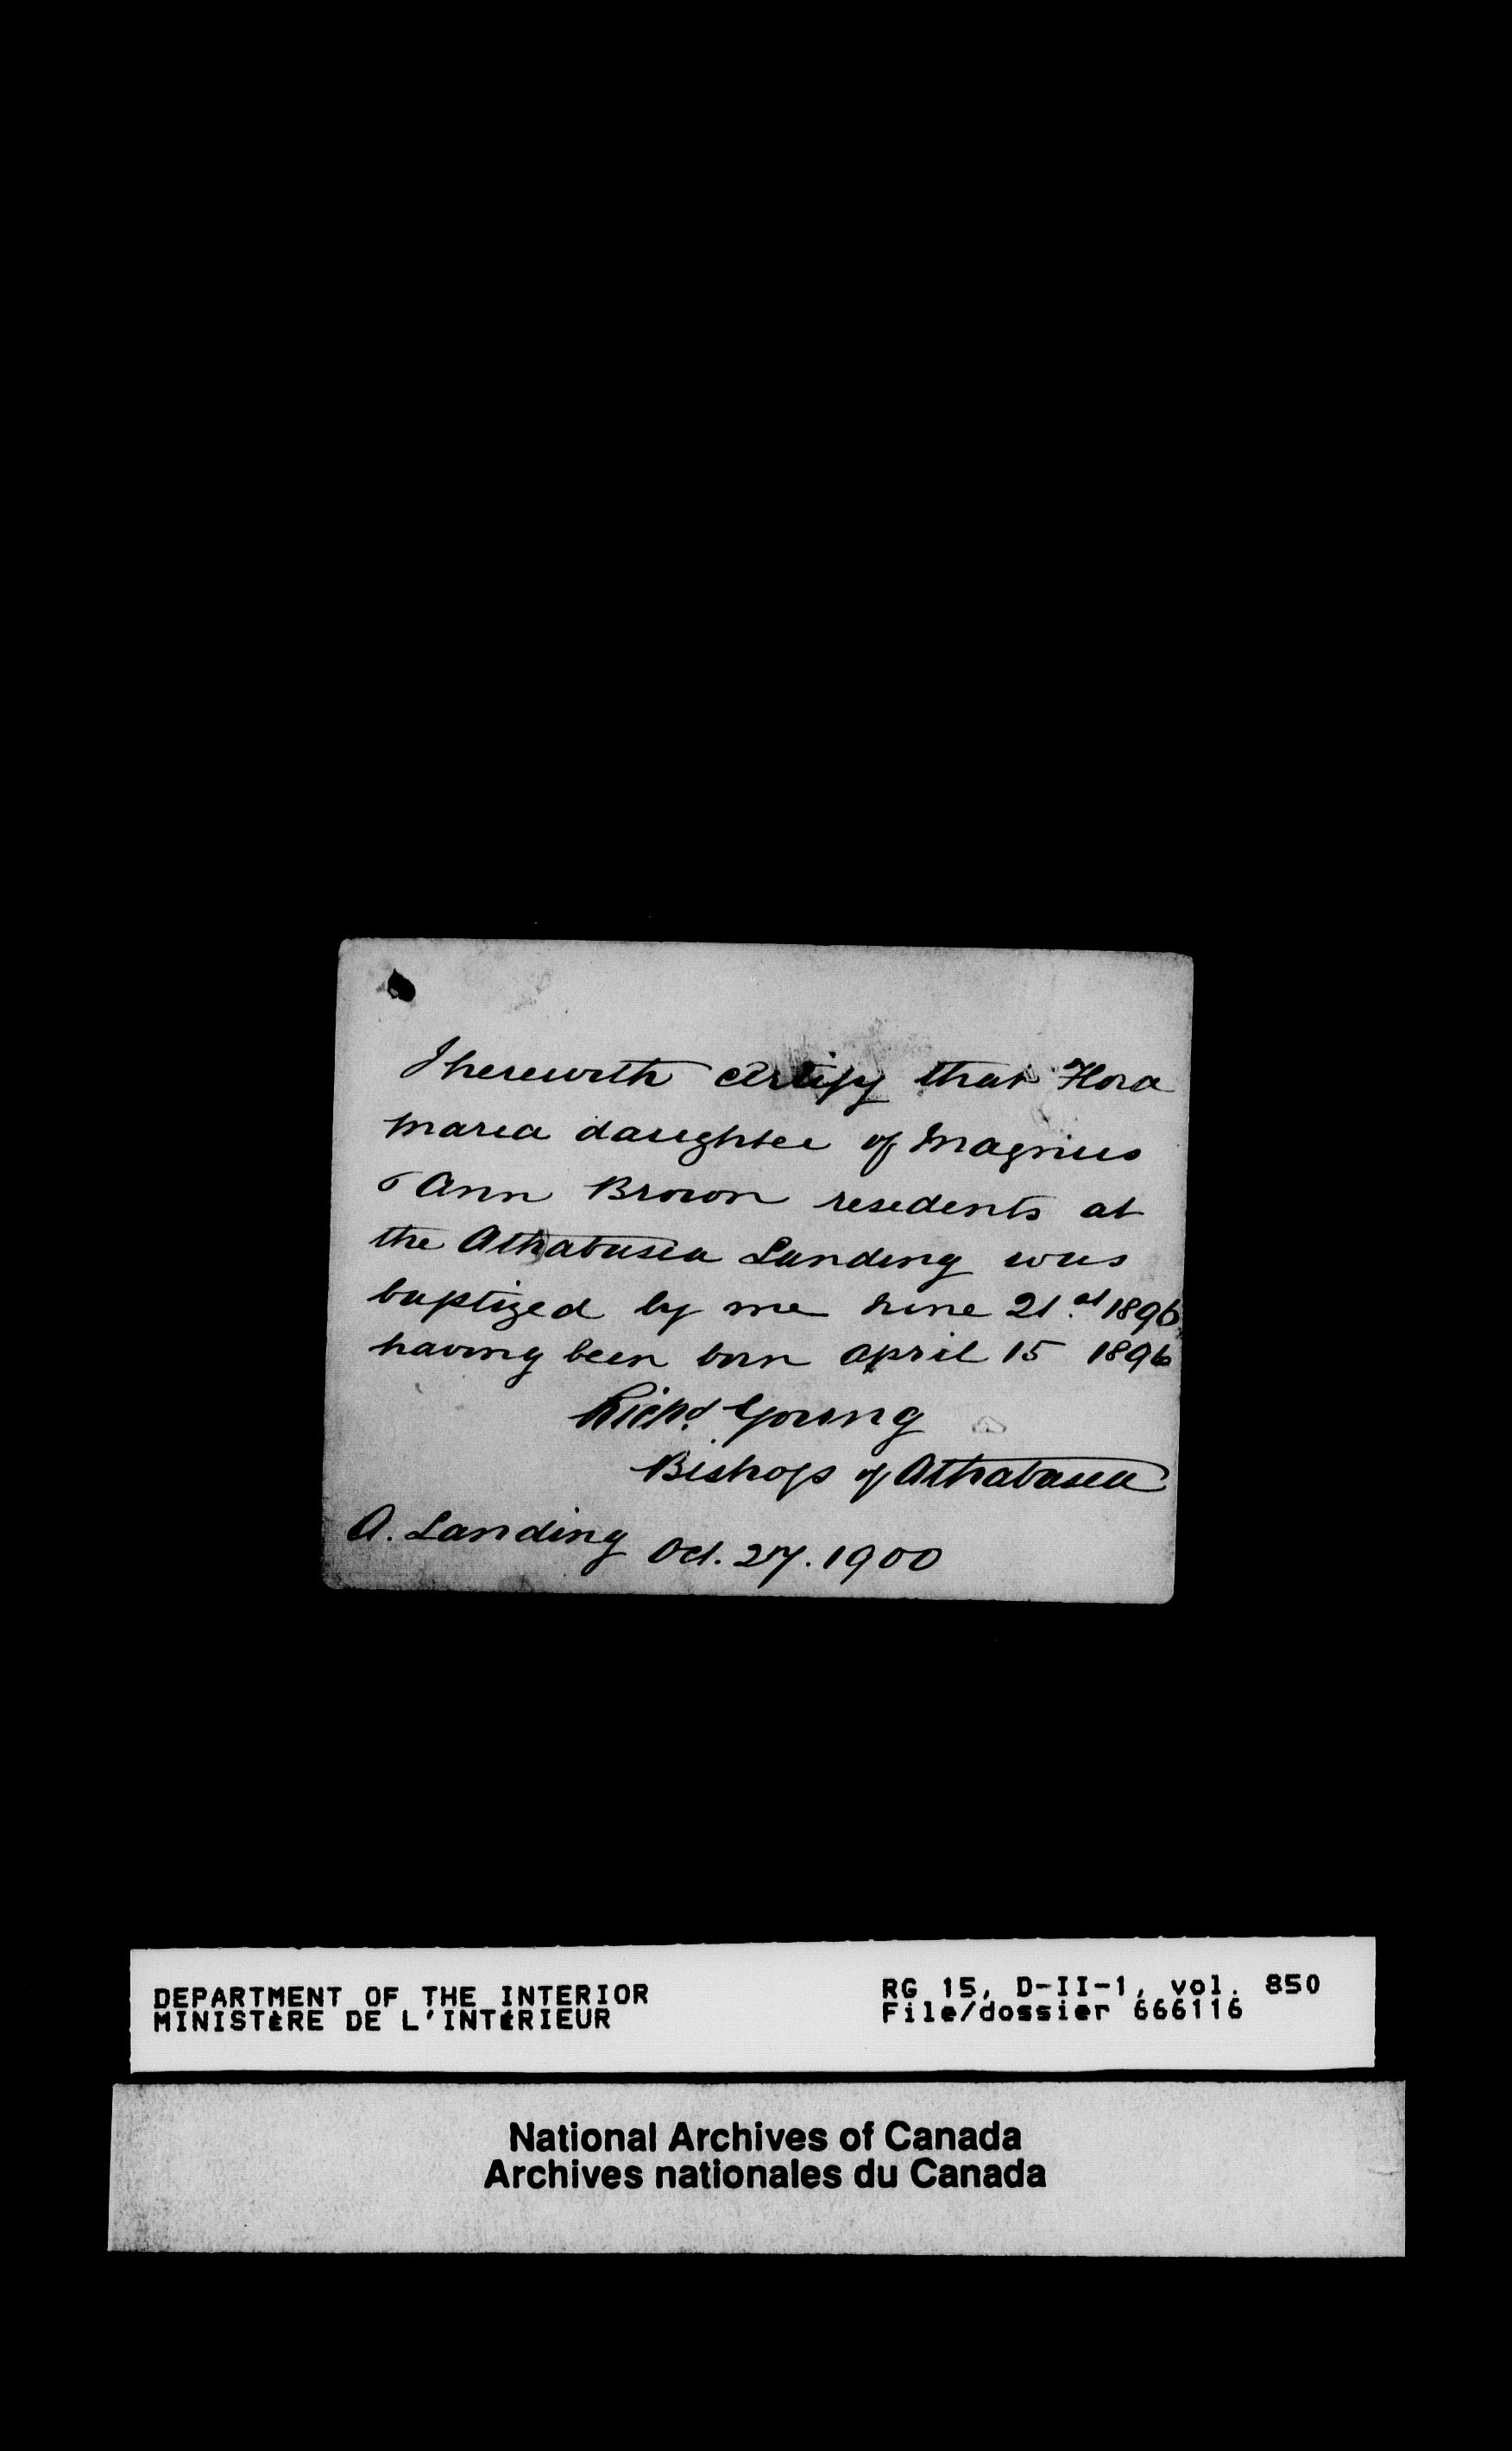 I herewith certify that Flora
Maria daughter of Magnus
& Ann Brown residents at
the Athabasca Landing was
baptized by me June 21.st 1896
having been born April 15 1896
Richd. Young
Bishop of Athabasca
A. Landing Oct. 27. 1900
DEPARTMENT OF THE INTERIOR
MINISTÈRE DE L'INTÉRIEUR
RG 15, D-II-1, vol. 850
File/dossier 666116
National Archives of Canada
Archives nationales du Canada